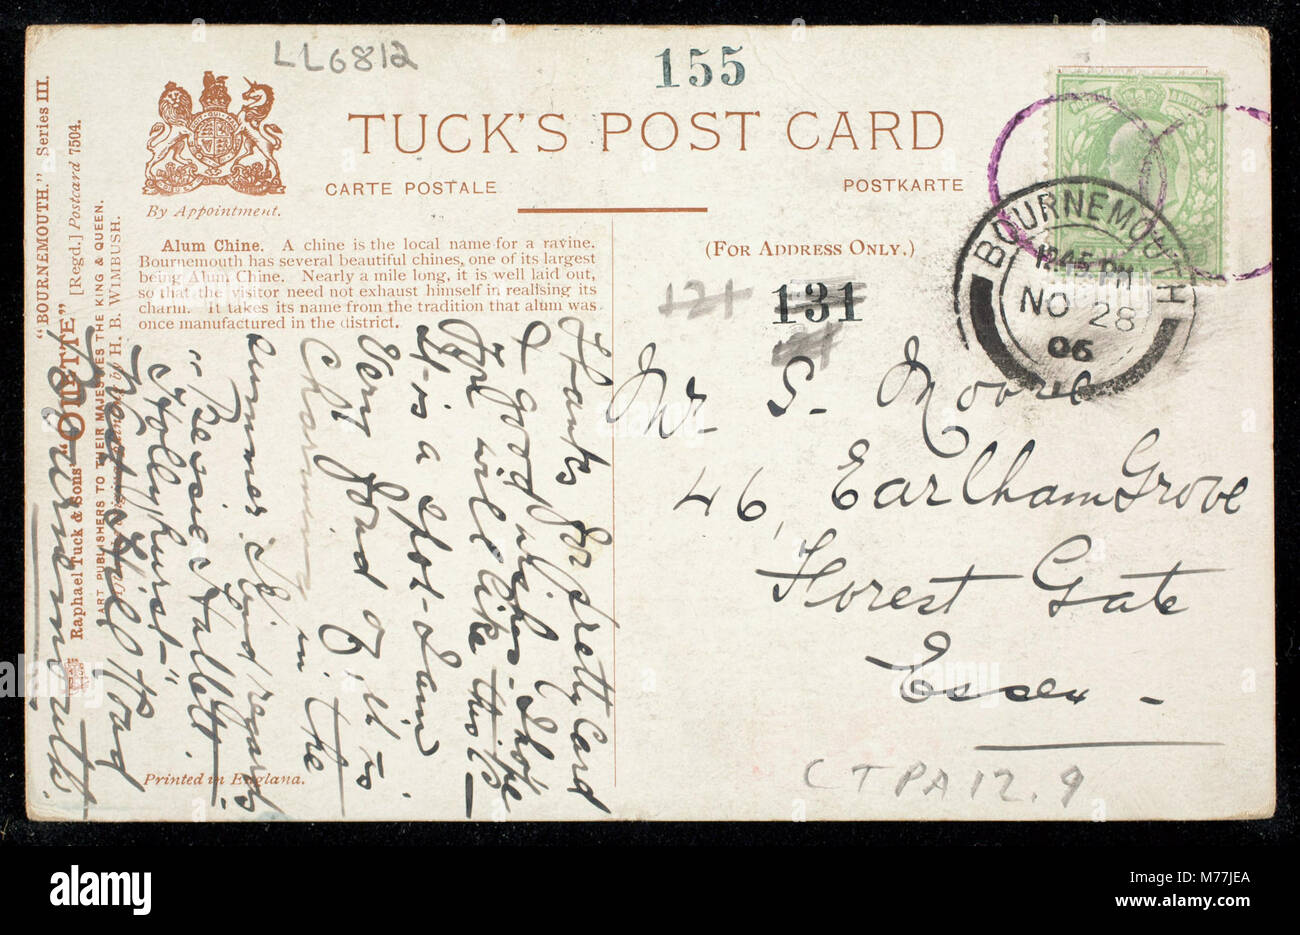 LL6812
155
TUCK'S POST CARD
CARTE POSTALE
POSTKARTE
By Appointment.
(FOR ADDRESS ONLY.)
Alum Chine. A chine is the local name for a ravine.
Bournemouth has several beautiful chines, one of its largest
being Alum Chine. Nearly a mile long, it is well laid out,
so that the visitor need not exhaust himself in realising its
charm. It takes its name from the tradition that alum was
once manufactured in the district.
"BOURNEMOUTH." Series III.
Raphael Tuck & Sons' "OILETTE" [Regd.] Postcard 7504.
ART PUBLISHERS TO THEIR MAJESTIES THE KING & QUEEN.
H. B. WIMBUSH.
Printed in England.
Thanks for pretty Card
& good wishes. I hope
you will like this
It is a spot I am
very fond of. it is
Charming in the
summer. Kind regards
"Bessie Hallett.
"Hollyhurst"
Hill Road
Bournemouth.
121
131
Mr S. Moore
46, Earlham Grove
Forest Gate
Essex
BOURNEMOUTH
12.45 PM
NO 28
06
CTPA12.9
alamy
alamy
Image ID: M77JEA
www.alamy.com